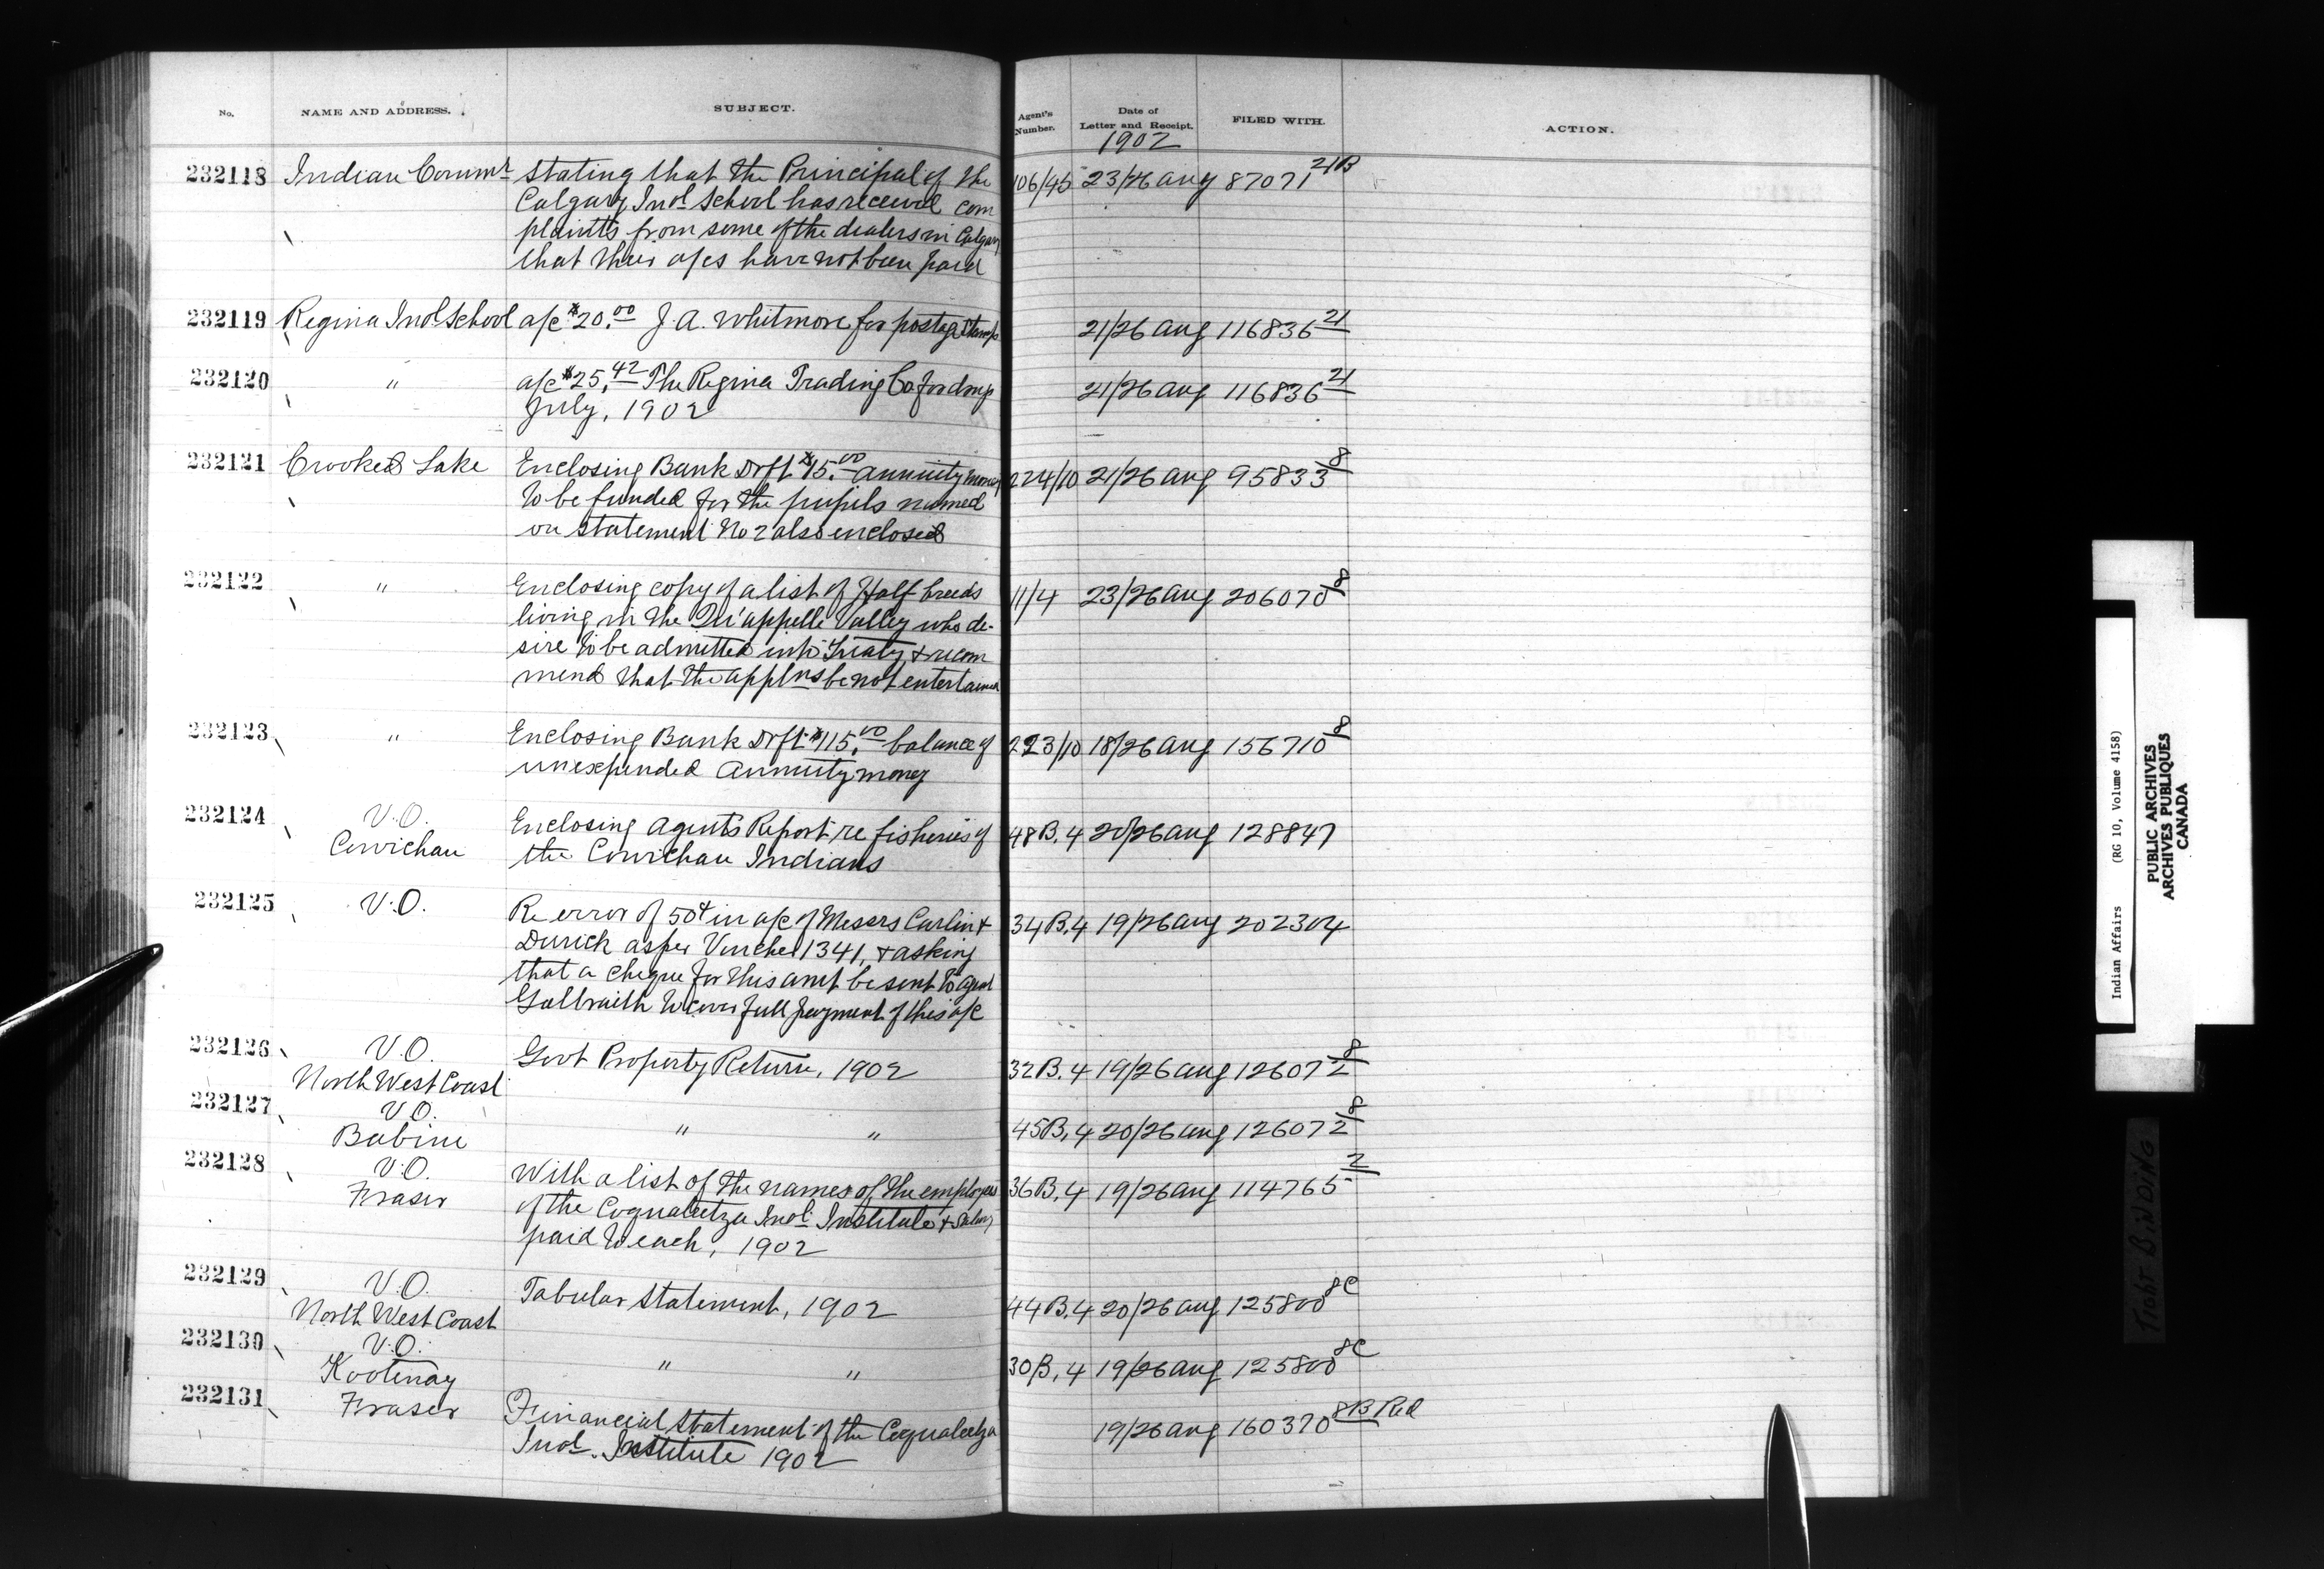 No. NAME AND ADDRESS. SUBJECT. Agent's Number. Date of Letter and Receipt. FILED WITH. ACTION.
1902
232118 Indian Commr stating that the Principal of the 106/45 23/26 Aug 87071 21B
Calgary Indl School has received com
plaints from some of the dealers in Calgary
that their a/cs have not been paid
232119 Regina Indl School a/c $20.00 J. A. Whitmore for postage stamps 21/26 Aug 116836 21
232120 " a/c $25.42 The Regina Trading Co for drugs 21/26 Aug 116836 21
July, 1902
232121 Crooked Lake Enclosing Bank Drft $15.00 annuity money 224/10 21/26 Aug 95833 8
to be funded for the pupils named
on statement No 2 also enclosed
232122 " Enclosing copy of a list of Half breeds 11/4 23/26 Aug 206070 8
living in the Qu'appelle Valley who de-
sire to be admitted into Treaty & recom
mends that the applns be not entertained
232123 " Enclosing Bank Drft $115.00 balance of 223/10 18/26 Aug 156710 8
unexpended Annuity money
232124 V.O. Enclosing Agents Report re fisheries of 48B.4 20/26 Aug 128847
Cowichan the Cowichan Indians
232125 V.O. Re error of 50¢ in a/c of Messrs Carlin & 34B.4 19/26 Aug 202304
Durick as per Voucher 1341, & asking
that a cheque for this amt be sent to agent
Galbraith to cover full payment of this a/c
232126 V.O. Govt Property Return, 1902 32B.4 19/26 Aug 126072 8
North West Coast
232127 V.O. " " 45B.4 20/26 Aug 126072 8
Babine
232128 V.O. With a list of the names of the employees 36B.4 19/26 Aug 114765 2
Fraser of the Coqualeetza Indl Institute & Salary
paid to each, 1902
232129 V.O. Tabular Statement, 1902 44B.4 20/26 Aug 125800 8C
North West Coast
232130 V.O. " " 30B.4 19/26 Aug 125800 8C
Kootenay
232131 Fraser Financial Statement of the Coqualeetza 19/26 Aug 160370 8B Red
Indl. Institute 1902
Indian Affairs (RG 10, Volume 4158)
PUBLIC ARCHIVES
ARCHIVES PUBLIQUES
CANADA
TIGHT BINDING